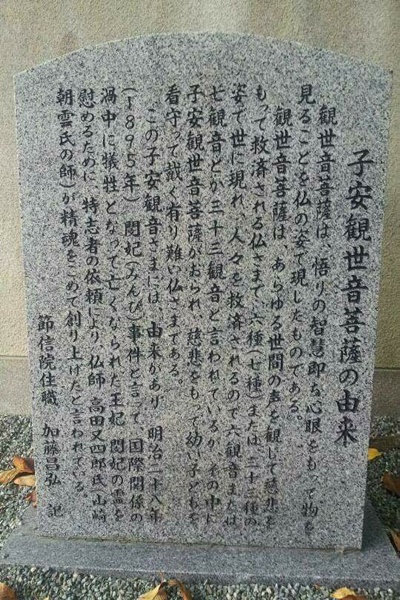 子安観世音菩薩の由来
観世音菩薩は、悟りの智慧即ち心眼をもって物を
見ることを仏の姿で現したものである。
観世音菩薩は、あらゆる世間の声を観じて慈悲を
もって救済される仏さまで、六種(七種)または三十三種の
姿で世に現れ、人々を救済されるので六観音または
七観音とか三十三観音と言われているが、その中に
子安観世音菩薩がおられ、慈悲をもって幼い子どもを
看守って戴く有り難い仏さまである。
この子安観音さまには、由来があり、明治二十八年
(1895年)閔妃(みんぴ)事件と言って、国際関係の
渦中に犠牲となって亡くなられた王妃 閔妃の霊を
慰めるために、特志者の依頼により、仏師 高田又四郎氏(山崎
朝雲氏の師)が精魂をこめて創り上げたと言われている。
節信院住職 加藤昌弘 記